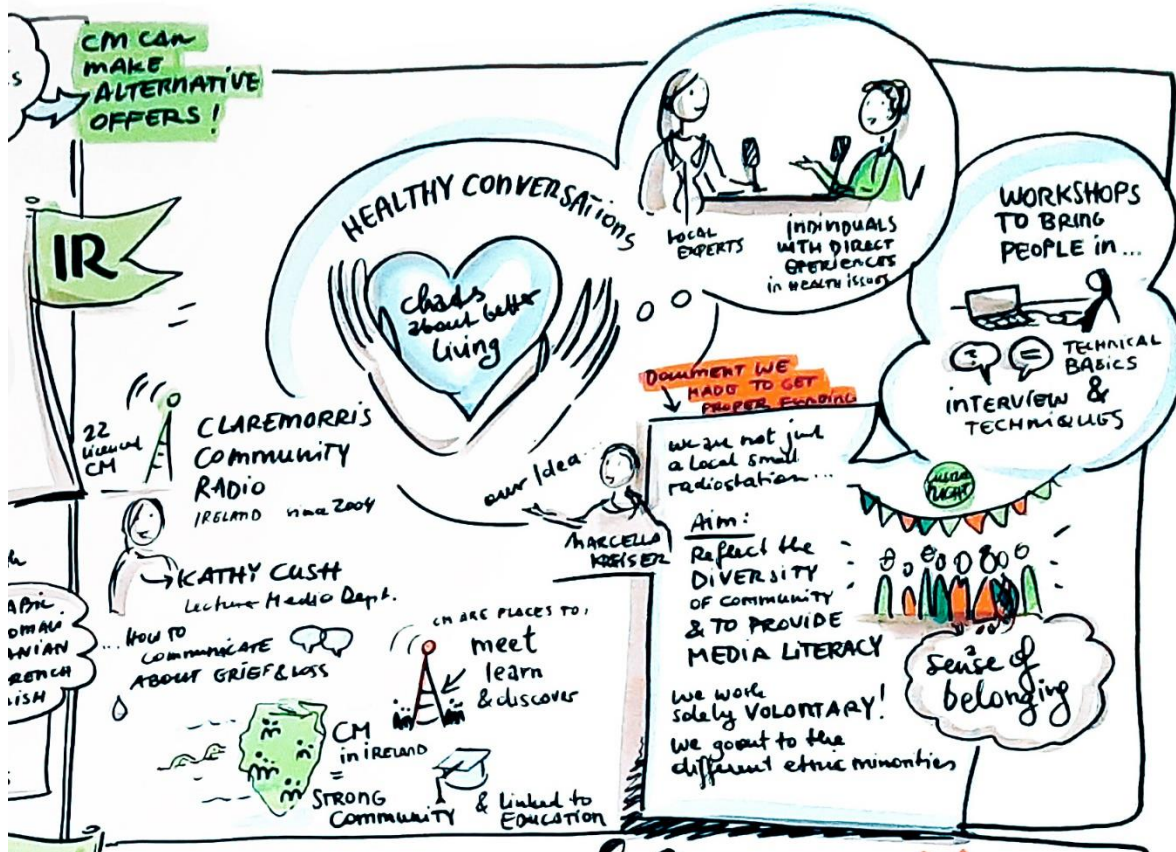 CM CAN
MAKE
ALTERNATIVE
OFFERS!
IR
HEALTHY CONVERSATIONS
chats
about better
living
LOCAL
EXPERTS
INDIVIDUALS
WITH DIRECT
EPERIENCES
in HEALTH issues
WORKSHOPS
TO BRING
PEOPLE in ...
TECHNICAL
BASICS
&
INTERVIEW
TECHNIQUES
22
licenced
CM
CLAREMORRIS
COMMUNITY
RADIO
IRELAND since 2004
KATHY CUSH
Lecture Media Dept.
... HOW TO
COMMUNICATE
ABOUT GRIEF & LOSS
CM ARE PLACES TO,
meet
learn
& discover
CM
in IRELAND
=
STRONG
COMMUNITY
& Linked to
EDUCATION
our Idea...
MARCELLA
DOCUMENT WE
MADE TO GET
PROPER FUNDING
we are not just
a local small
radiostation ...
Aim:
Reflect the
DIVERSITY
OF COMMUNITY
& TO PROVIDE
MEDIA LITERACY
we work
solely VOLONTARY!
we goout to the
different ethnic minorities
NIGHT
sense of
belonging